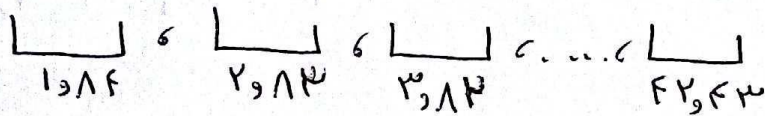 ۱و۸۴ ، ۲و۸۳ ، ۳و۸۳ ، .... ، ۴۲و۴۳